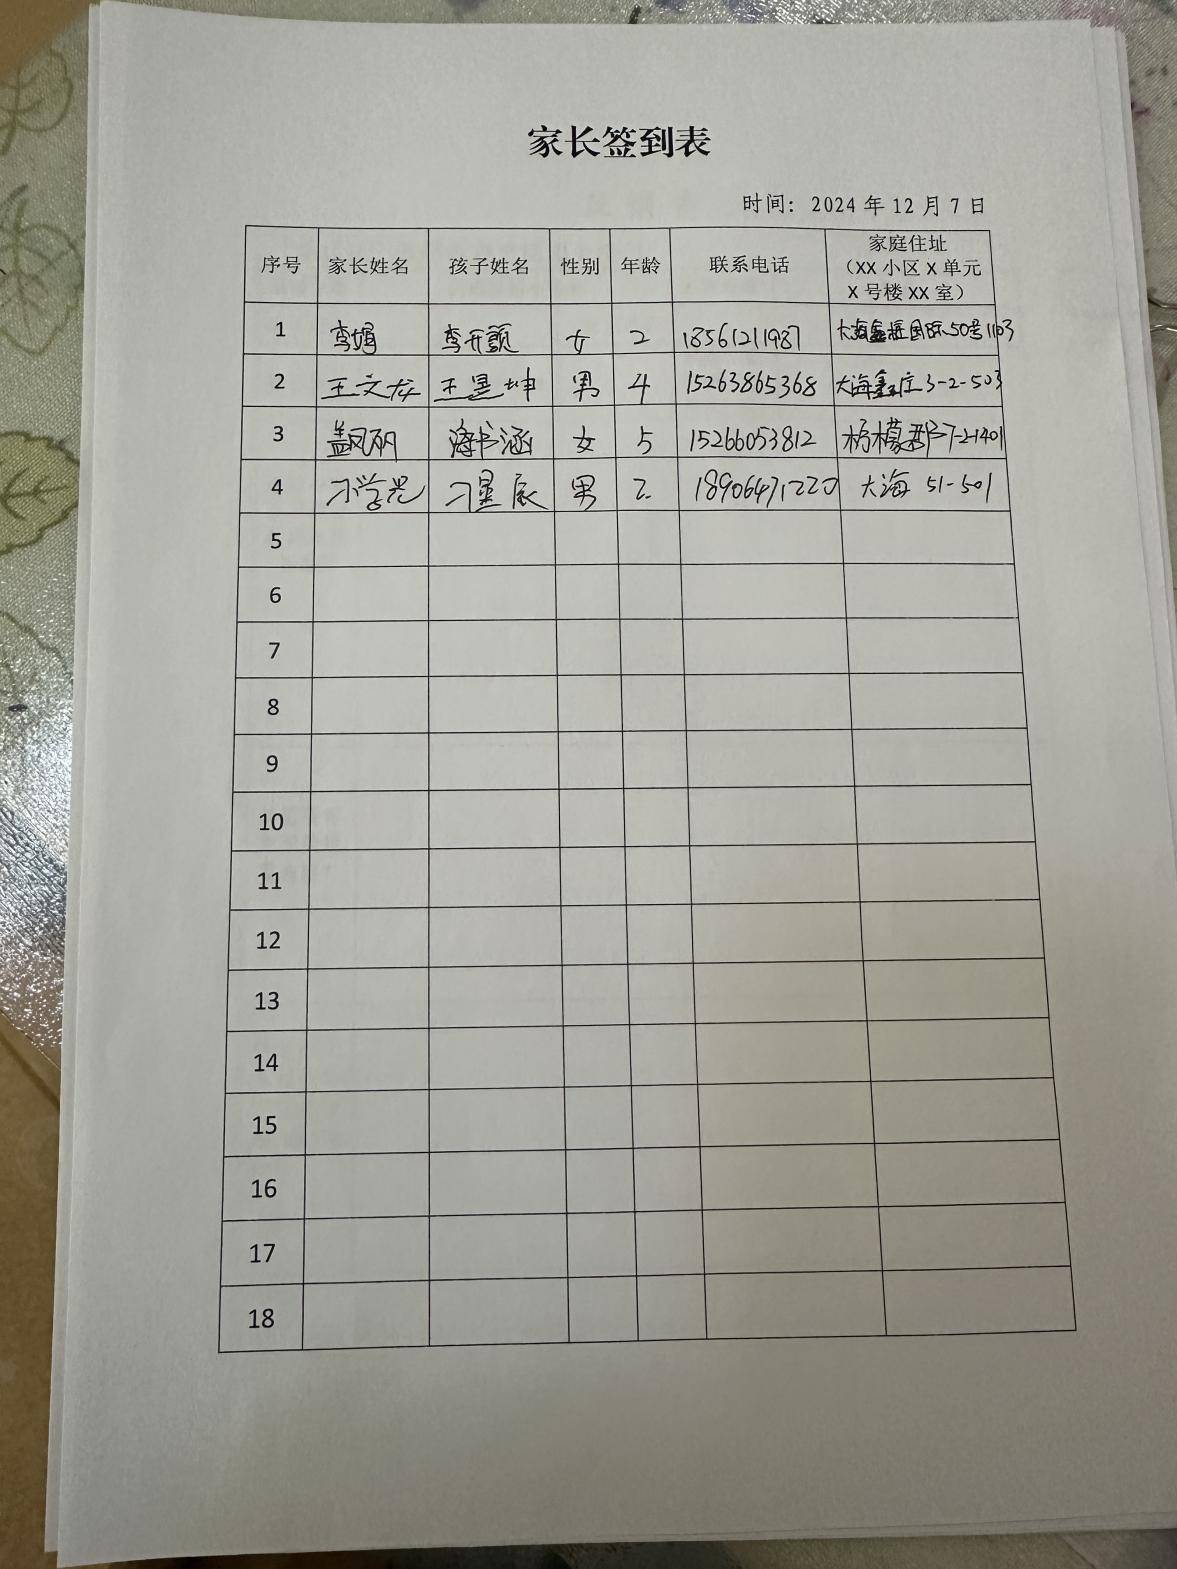 家长签到表
时间：2024 年 12 月 7 日
序号 家长姓名 孩子姓名 性别 年龄 联系电话 家庭住址
（XX 小区 X 单元
X 号楼 XX 室）
1 女 2 18561211987 大海 国际50号1103
2 王文龙 王昱坤 男 4 15263865368 大海鑫庄3-2-503
3 盖凤丽 书涵 女 5 15266053812 柠檬郡7-2-1401
4 刁学光 刁星辰 男 2 18906471220 大海 51-501
5
6
7
8
9
10
11
12
13
14
15
16
17
18